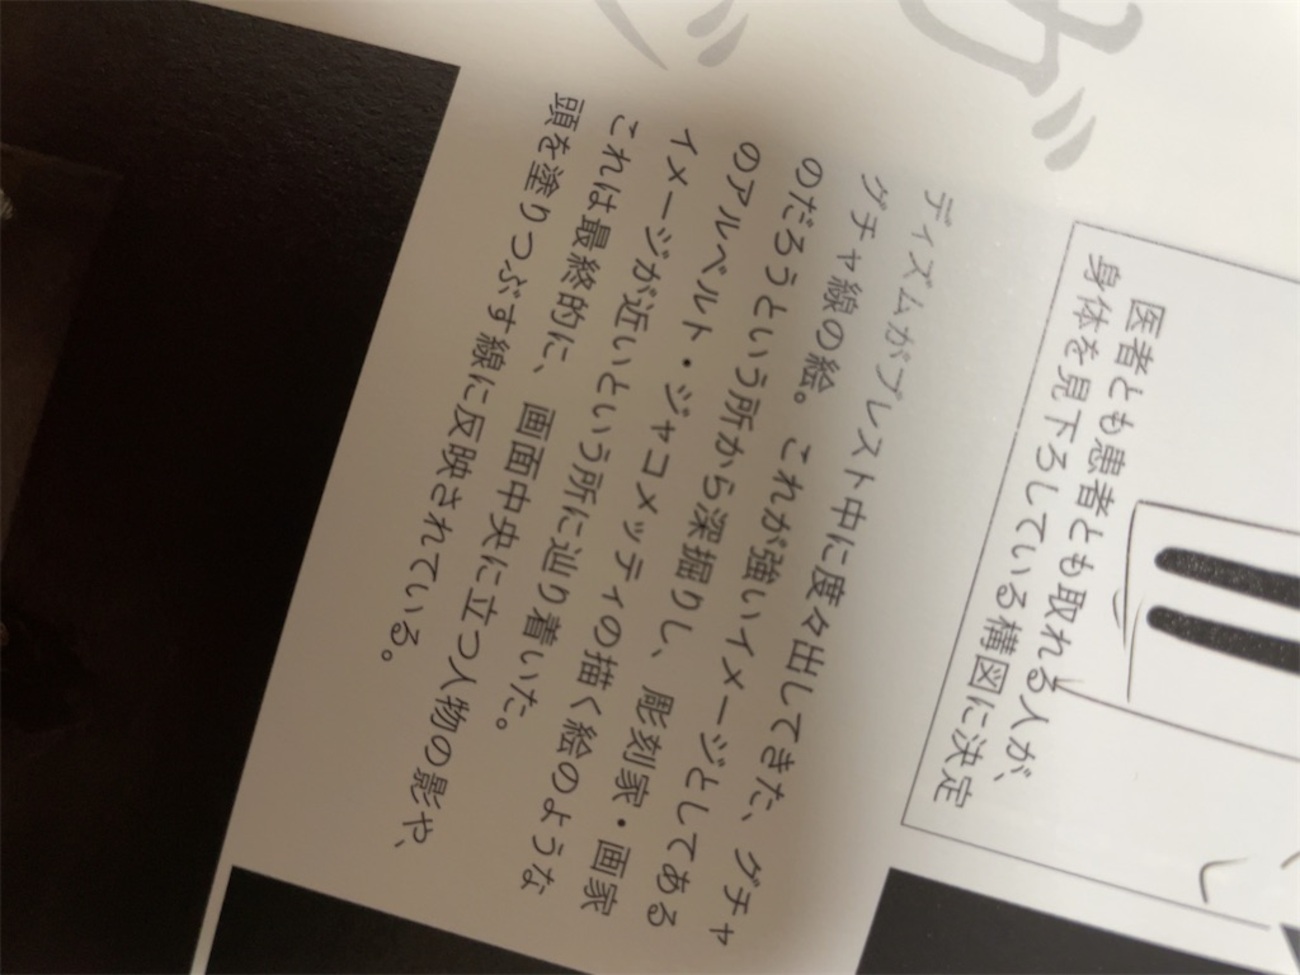 医者とも患者とも取れる人が、
身体を見下ろしている構図に決定
ディズムがブレスト中に度々出してきた、グチャ
グチャ線の絵。これが強いイメージとしてある
のだろうという所から深掘りし、彫刻家・画家
のアルベルト・ジャコメッティの描く絵のような
イメージが近いという所に辿り着いた。
これは最終的に、画面中央に立つ人物の影や、
頭を塗りつぶす線に反映されている。